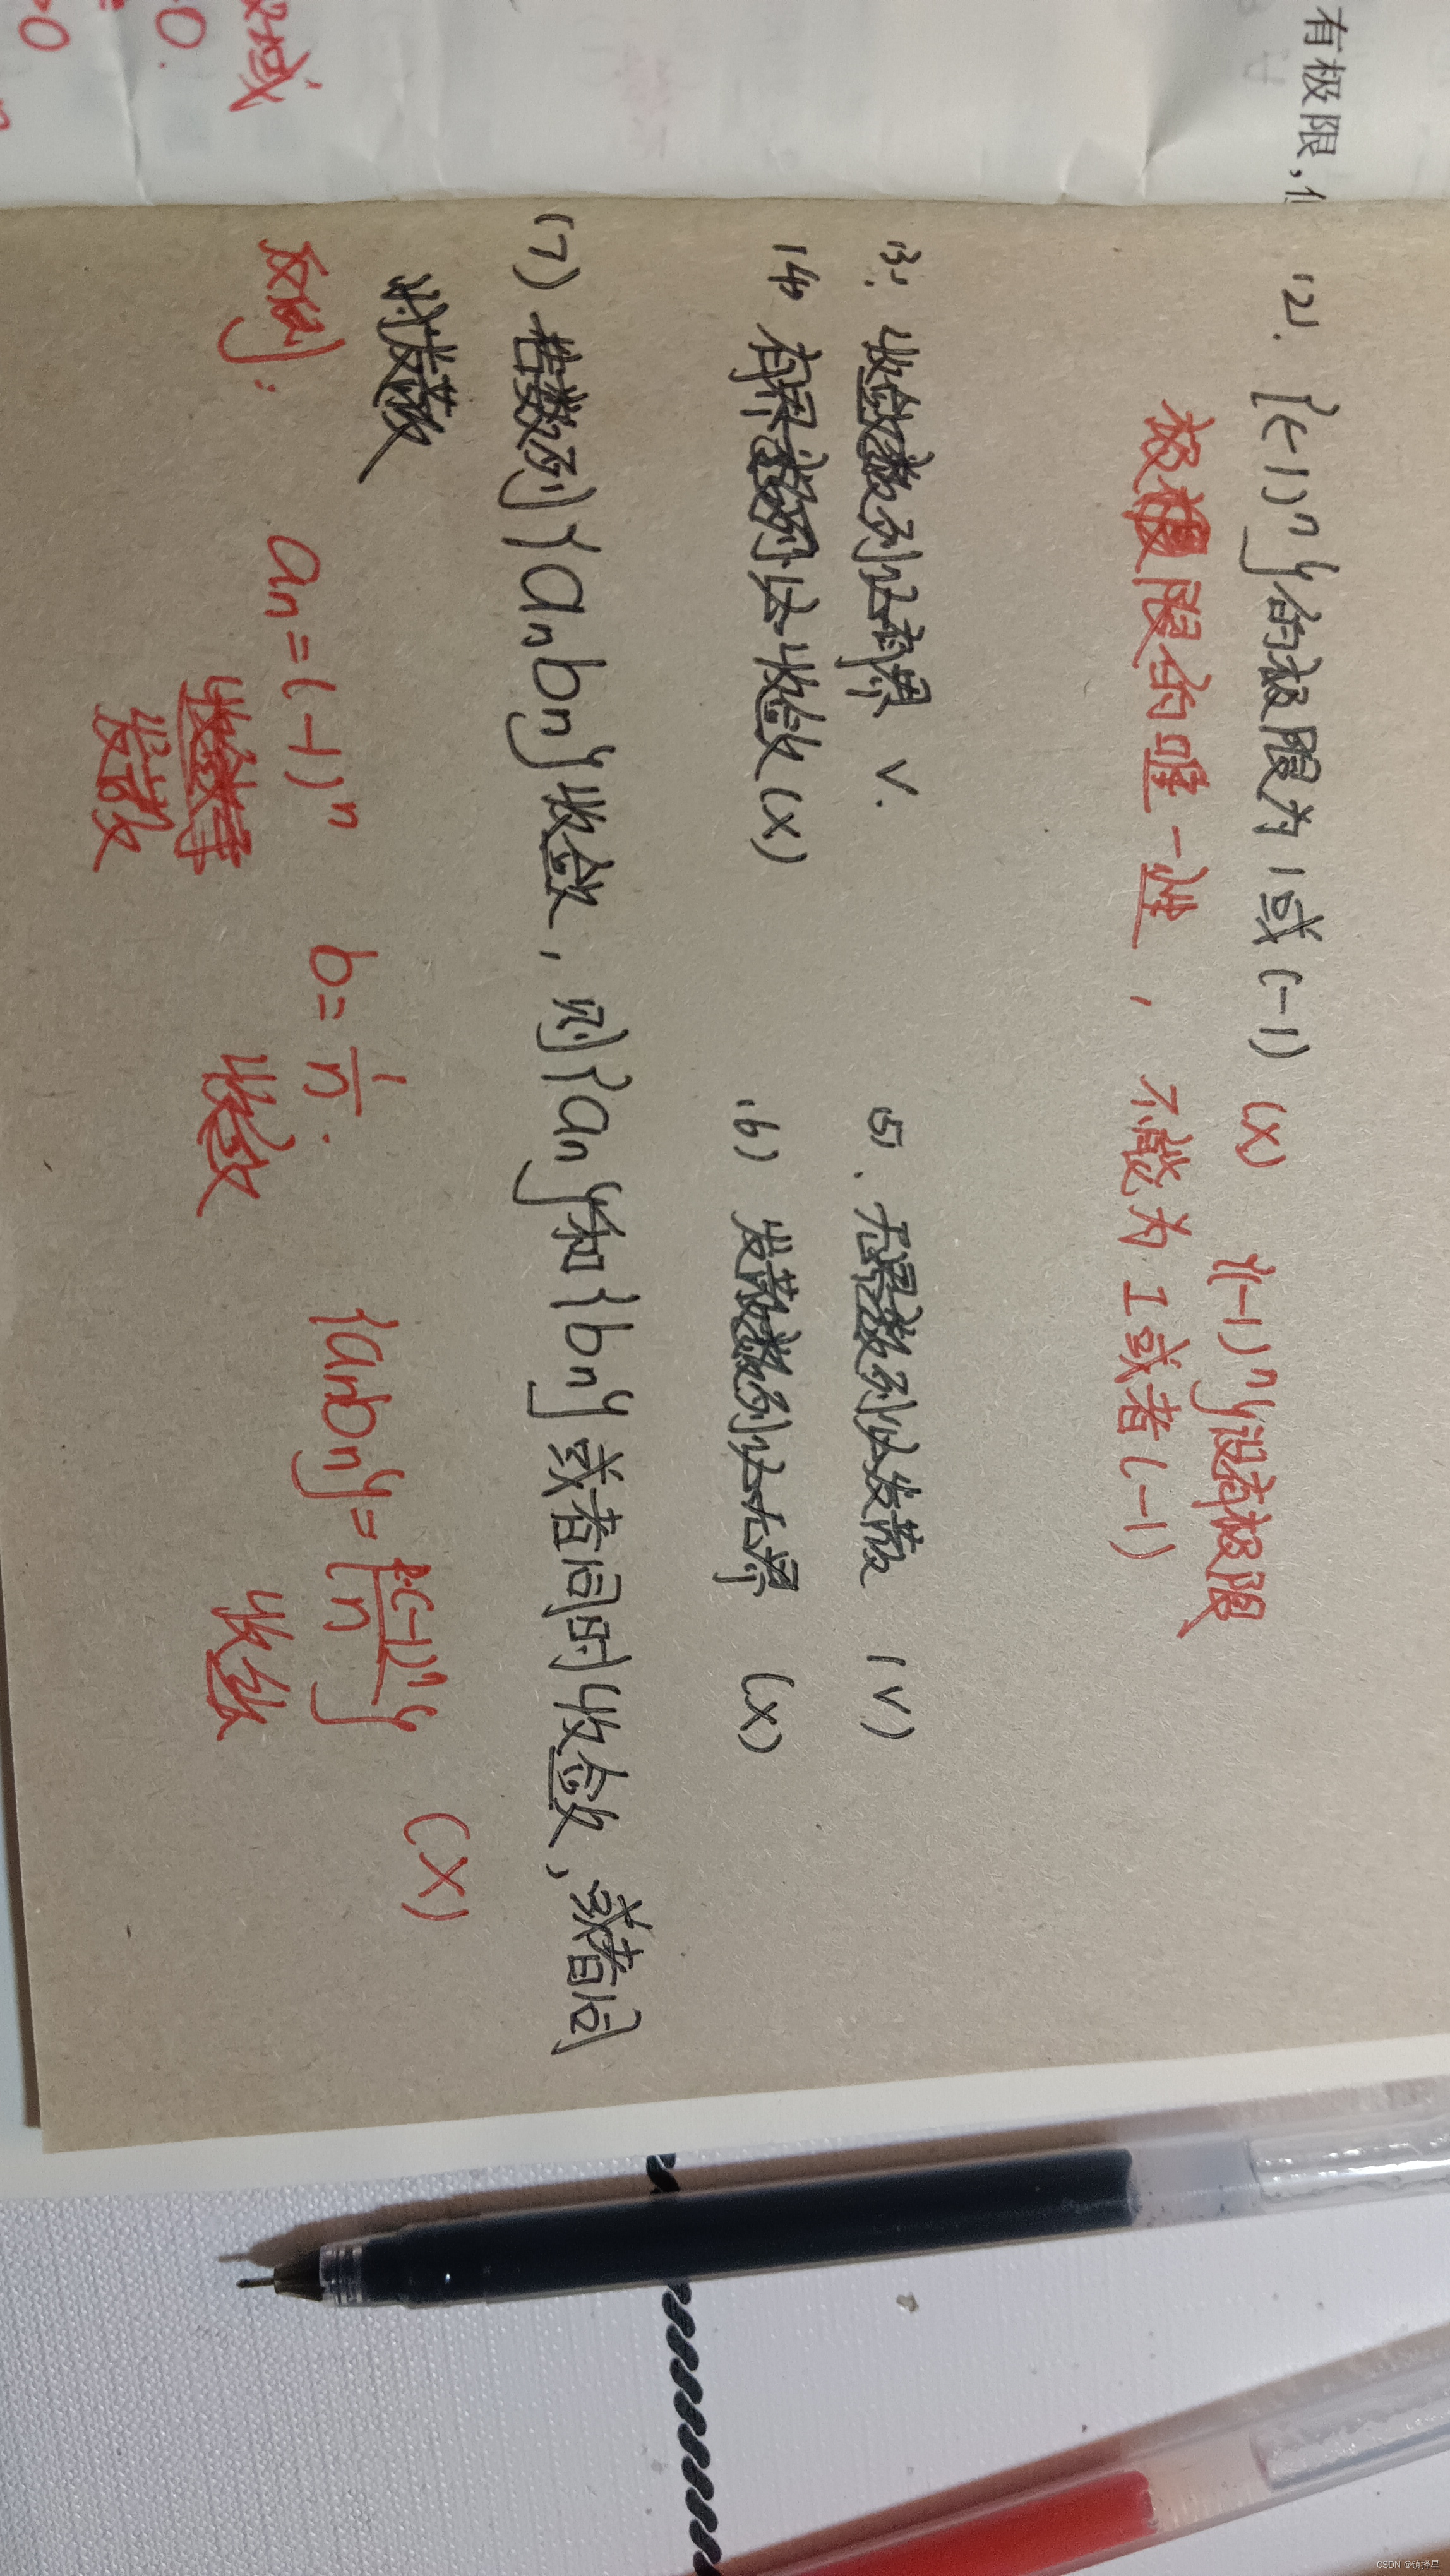 有极限,
(2). {(-1)ⁿ}的极限为1或(-1) (×) {(-1)ⁿ}没有极限
极限的唯一性, 不能为1或者(-1)
(3). 收敛数列必有界 √. (5). 无界数列必发散 (√)
(4) 有界数列必收敛(×) (6) 发散数列必无界 (×)
(7) 若数列{anbn}收敛, 则{an}和{bn}或者同时收敛, 或者同
时发散
反例: an=(-1)ⁿ b=1/n. {anbn}={1·(-1)ⁿ/n} (×)
发散 收敛 收敛
域
>0.
>0
CSDN @镇择星